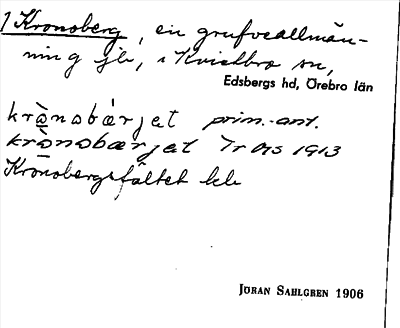 1 Kronoberg, en grufveallmän-
ning jb, i Kvistbro sn,
Edsbergs hd, Örebro län
krònobærjet prim.-ant.
krònobærjet 1913
Kronobergsfältet
JÖRAN SAHLGREN 1906